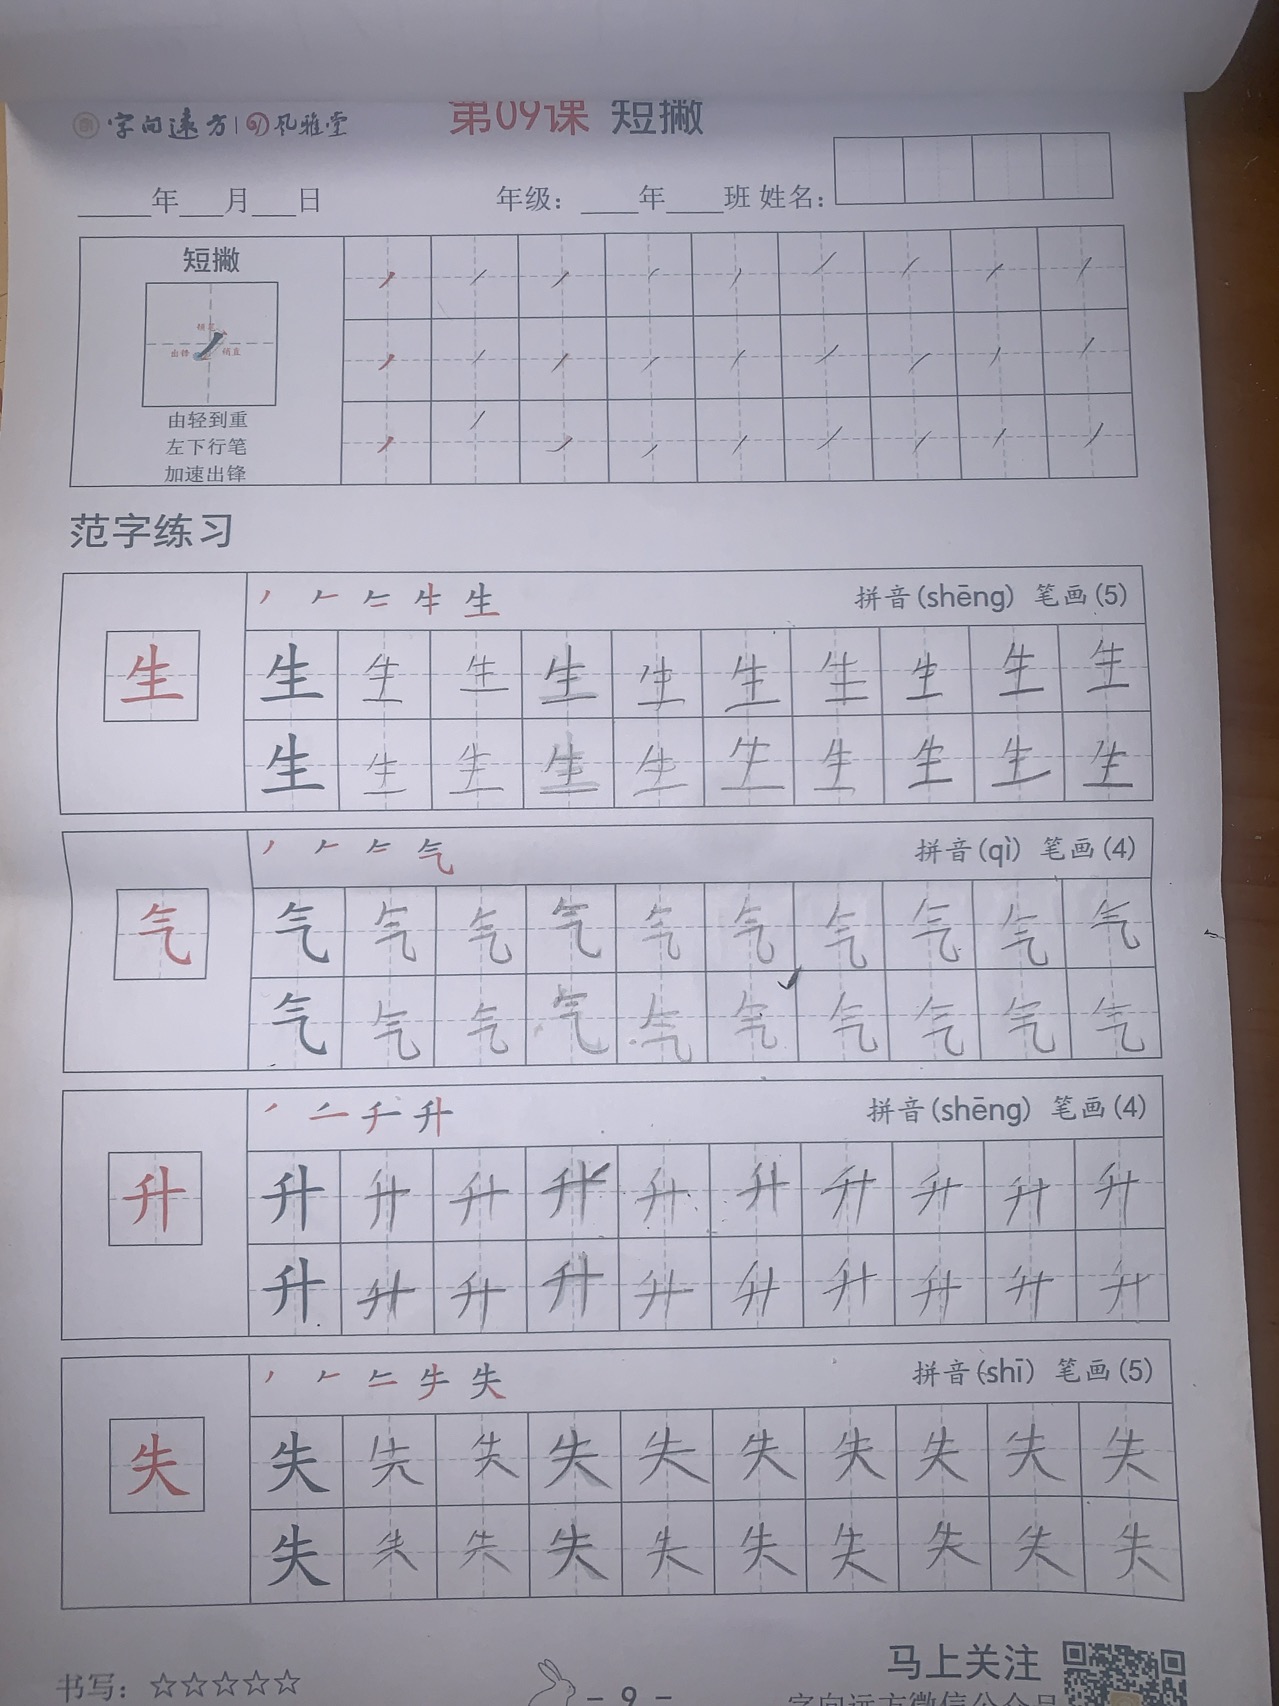 字向远方 | 风雅堂
第09课 短撇
年 月 日 年级： 年 班 姓名：
短撇
出锋
稍直
由轻到重
左下行笔
加速出锋
范字练习
生 拼音(shēng) 笔画(5)
生 生 生 生 生 生 生 生 生 生 生
生 生 生 生 生 生 生 生 生 生
气 拼音(qì) 笔画(4)
气 气 气 气 气 气 气 气 气 气 气
气 气 气 气 气 气 气 气 气 气
升 拼音(shēng) 笔画(4)
升 升 升 升 升 升 升 升 升 升 升
升 升 升 升 升 升 升 升 升 升
失 拼音(shī) 笔画(5)
失 失 失 失 失 失 失 失 失 失 失
失 失 失 失 失 失 失 失 失 失
马上关注
书写：☆☆☆☆☆
- 9 -
字向远方微信公众号